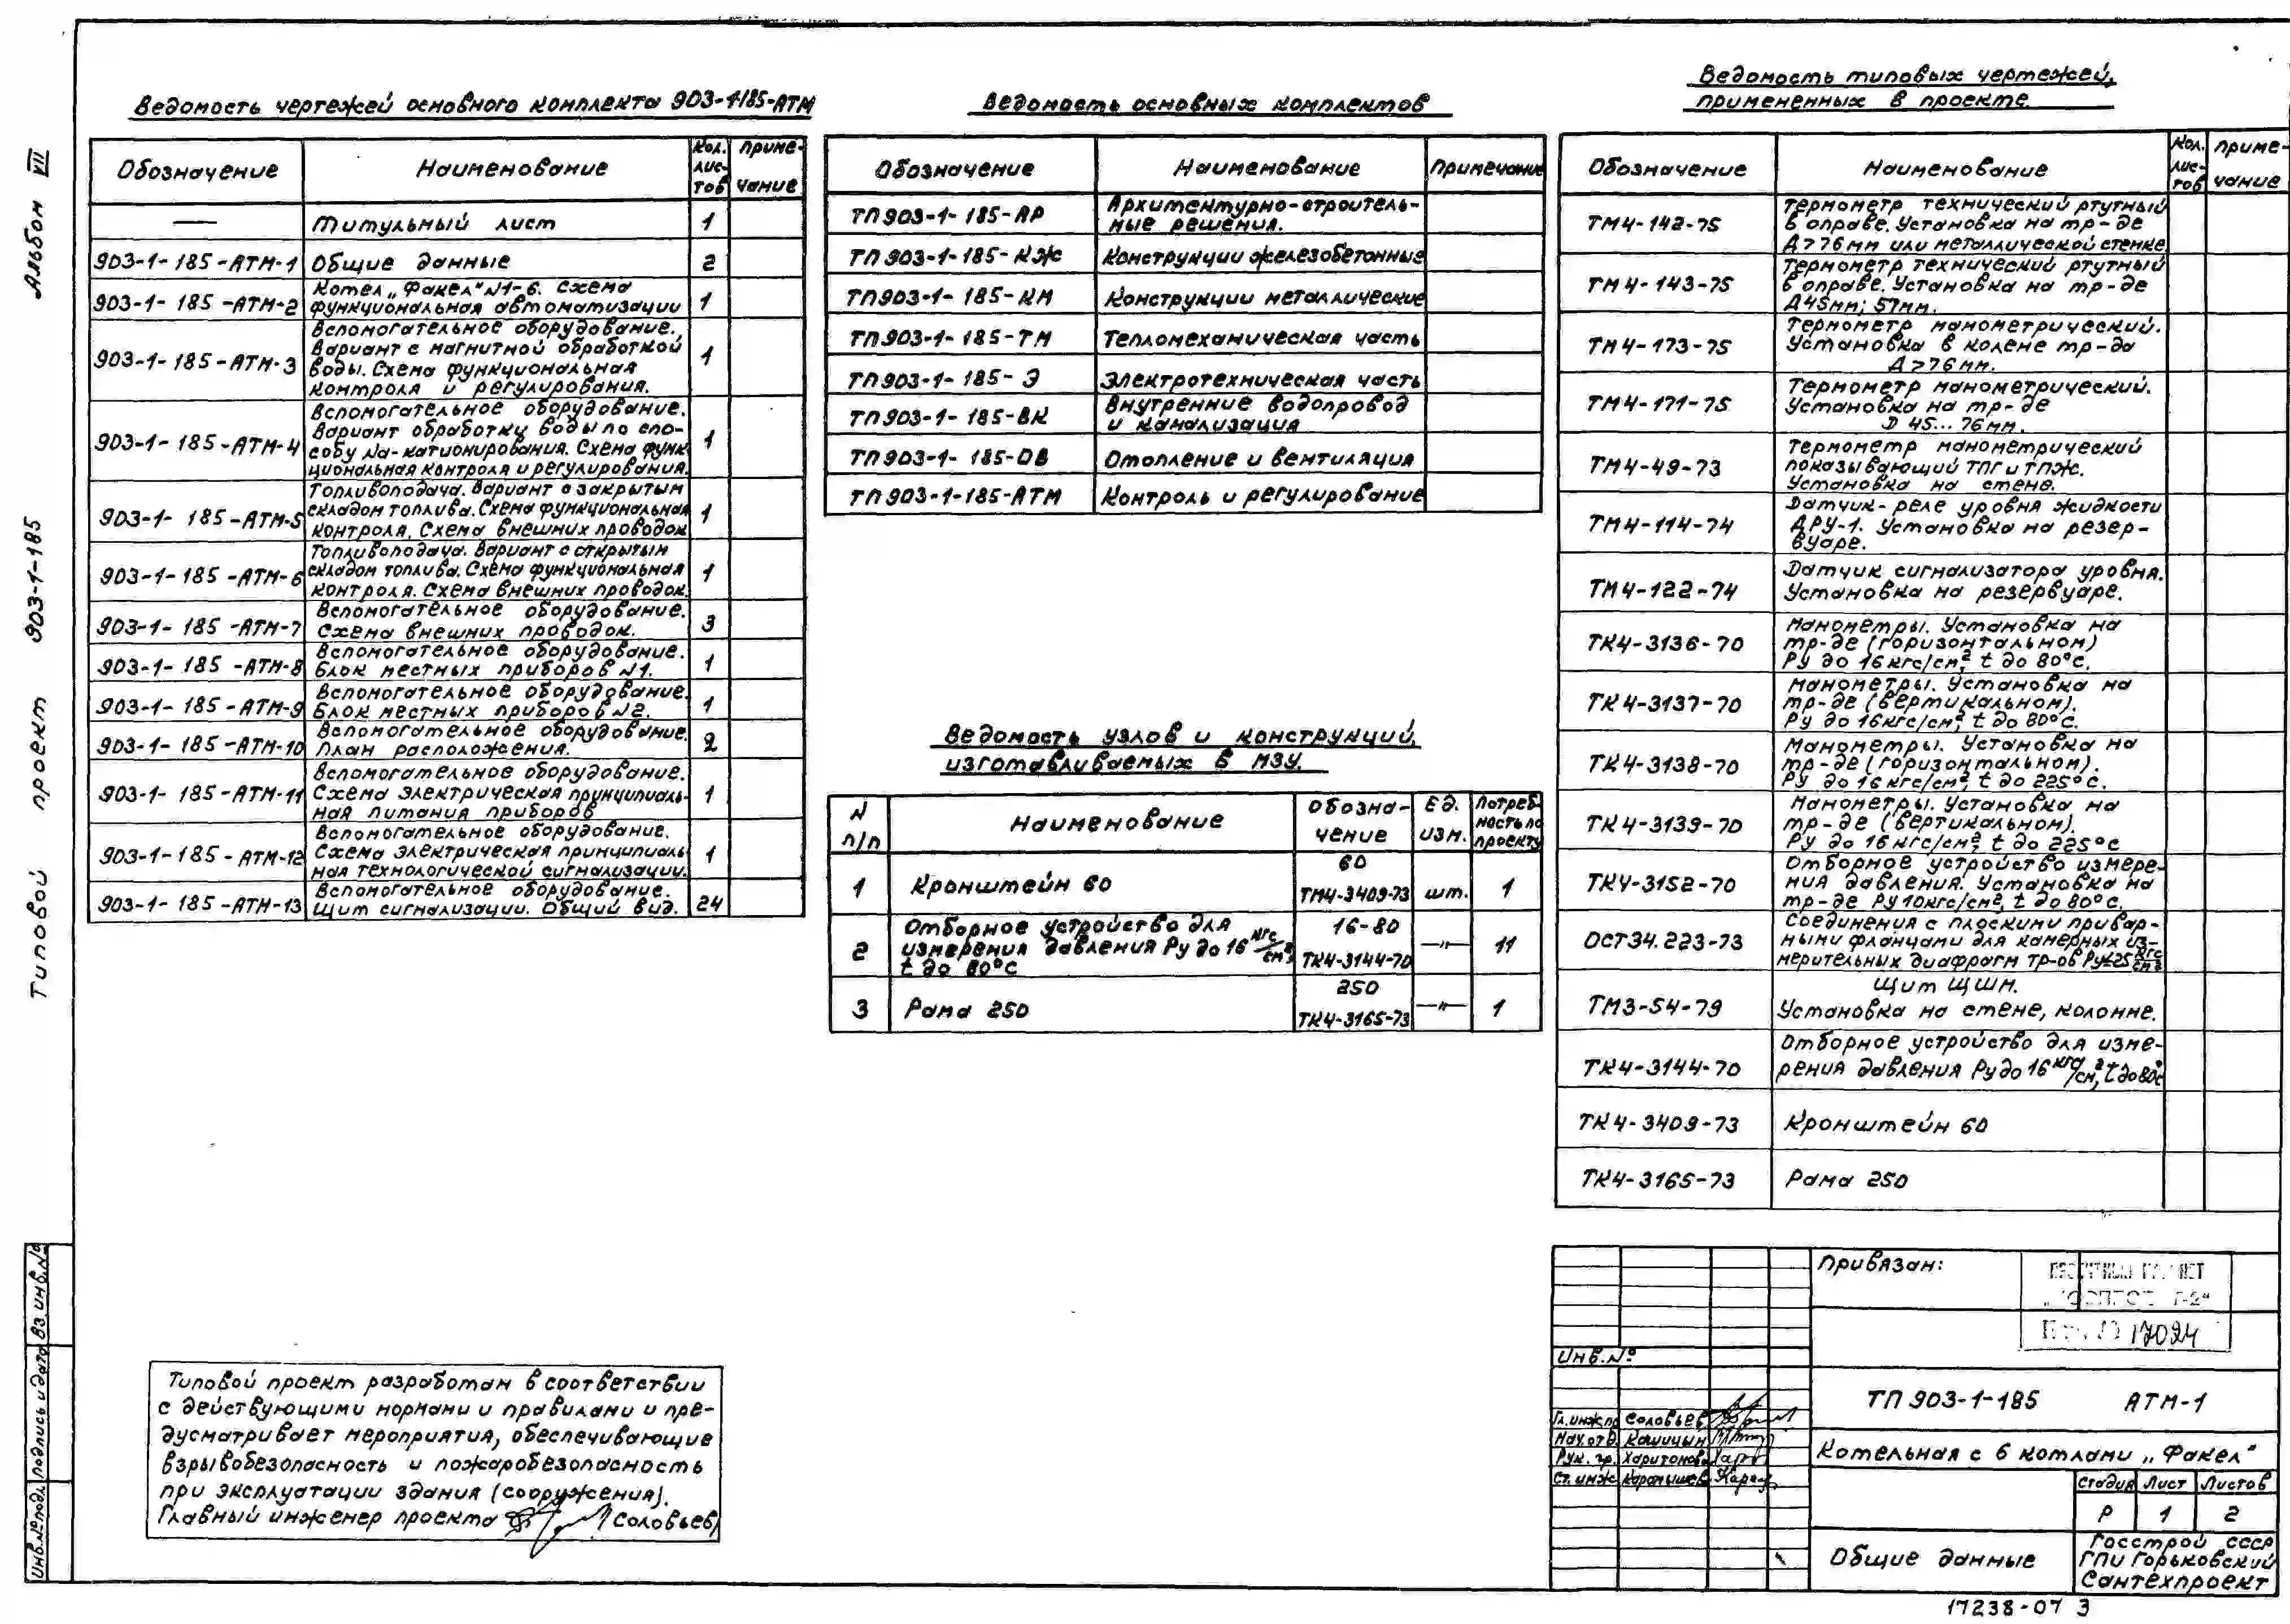 Альбом VII
Типовой проект 903-1-185
Ведомость чертежей основного комплекта 903-1-185-АТМ
Обозначение Наименование Кол. лис-тов Приме-чание
— Титульный лист 1
903-1-185-АТМ-1 Общие данные 2
903-1-185-АТМ-2 Котел „Факел" N1-6. Схема
функциональная автоматизации 1
903-1-185-АТМ-3 Вспомогательное оборудование.
Вариант с магнитной обработкой
воды. Схема функциональная
контроля и регулирования. 1
903-1-185-АТМ-4 Вспомогательное оборудование.
Вариант обработки воды по спо-
собу Na-катионирования. Схема функ-
циональная контроля и регулирования. 1
903-1-185-АТМ-5 Топливоподача. Вариант с закрытым
складом топлива. Схема функциональная
контроля. Схема внешних проводок 1
903-1-185-АТМ-6 Топливоподача. Вариант с открытым
складом топлива. Схема функциональная
контроля. Схема внешних проводок. 1
903-1-185-АТМ-7 Вспомогательное оборудование.
Схема внешних проводок. 3
903-1-185-АТМ-8 Вспомогательное оборудование.
Блок местных приборов N1. 1
903-1-185-АТМ-9 Вспомогательное оборудование.
Блок местных приборов N2. 1
903-1-185-АТМ-10 Вспомогательное оборудование.
План расположения. 2
903-1-185-АТМ-11 Вспомогательное оборудование.
Схема электрическая принципиаль-
ная питания приборов 1
903-1-185-АТМ-12 Вспомогательное оборудование.
Схема электрическая принципиаль-
ная технологической сигнализации. 1
903-1-185-АТМ-13 Вспомогательное оборудование.
Щит сигнализации. Общий вид. 24
Ведомость основных комплектов
Обозначение Наименование Примечание
ТП903-1-185-АР Архитектурно-строитель-
ные решения.
ТП903-1-185-КЖ Конструкции железобетонные
ТП903-1-185-КМ Конструкции металлические
ТП903-1-185-ТМ Тепломеханическая часть
ТП903-1-185-Э Электротехническая часть
ТП903-1-185-ВК Внутренние водопровод
и канализация
ТП903-1-185-ОВ Отопление и вентиляция
ТП903-1-185-АТМ Контроль и регулирование
Ведомость узлов и конструкций,
изготавливаемых в МЗУ.
N п/п Наименование Обозна-чение Ед. изм. Потреб-ность по проекту
1 Кронштейн 60 60 ТМ4-3409-73 шт. 1
2 Отборное устройство для
измерения давления Ру до 16 кгс/см²,
t до 80°С 16-80 ТК4-3144-70 —"— 11
3 Рама 250 250 ТК4-3165-73 —"— 1
Ведомость типовых чертежей,
примененных в проекте
Обозначение Наименование Кол. лис-тов Приме-чание
ТМ4-142-75 Термометр технический ртутный
в оправе. Установка на тр-де
Д>76мм или металлической стенке
ТМ4-143-75 Термометр технический ртутный
в оправе. Установка на тр-де
Д45мм; 57мм.
ТМ4-173-75 Термометр манометрический.
Установка в колене тр-да
Д>76мм.
ТМ4-171-75 Термометр манометрический.
Установка на тр-де
D 45...76мм.
ТМ4-49-73 Термометр манометрический
показывающий ТПГ и ТПЖ.
Установка на стене.
ТМ4-114-74 Датчик-реле уровня жидкости
ДРУ-1. Установка на резер-
вуаре.
ТМ4-122-74 Датчик сигнализатора уровня.
Установка на резервуаре.
ТК4-3136-70 Манометры. Установка на
тр-де (горизонтальном)
Ру до 16кгс/см², t до 80°С.
ТК4-3137-70 Манометры. Установка на
тр-де (вертикальном).
Ру до 16кгс/см², t до 80°С.
ТК4-3138-70 Манометры. Установка на
тр-де (горизонтальном).
Ру до 16кгс/см², t до 225°С.
ТК4-3139-70 Манометры. Установка на
тр-де (вертикальном).
Ру до 16кгс/см², t до 225°С
ТК4-3152-70 Отборное устройство измере-
ния давления. Установка на
тр-де Ру10кгс/см², t до 80°С.
ОСТ34.223-73 Соединения с плоскими привар-
ными фланцами для камерных из-
мерительных диафрагм тр-ов Ру≤25 кгс/см²
ТМ3-54-79 Щит ЩШМ.
Установка на стене, колонне.
ТК4-3144-70 Отборное устройство для изме-
рения давления Ру до 16 кгс/см², t до 80°С
ТК4-3409-73 Кронштейн 60
ТК4-3165-73 Рама 250
Типовой проект разработан в соответствии
с действующими нормами и правилами и пре-
дусматривает мероприятия, обеспечивающие
взрывобезопасность и пожаробезопасность
при эксплуатации здания (сооружения).
Главный инженер проекта /Соловьев/
Инв.№подл. Подпись и дата Вз.инв.№
Привязан:
17024
Инв.№
ТП 903-1-185 АТМ-1
Гл.инж.пр Соловьев
Нач.отд. Кашицын
Рук. гр. Харитонова
Ст.инж. Карамышев
Котельная с 6 котлами „Факел"
Стадия Лист Листов
Р 1 2
Общие данные
Госстрой СССР
ГПИ Горьковский
Сантехпроект
17238-07 3